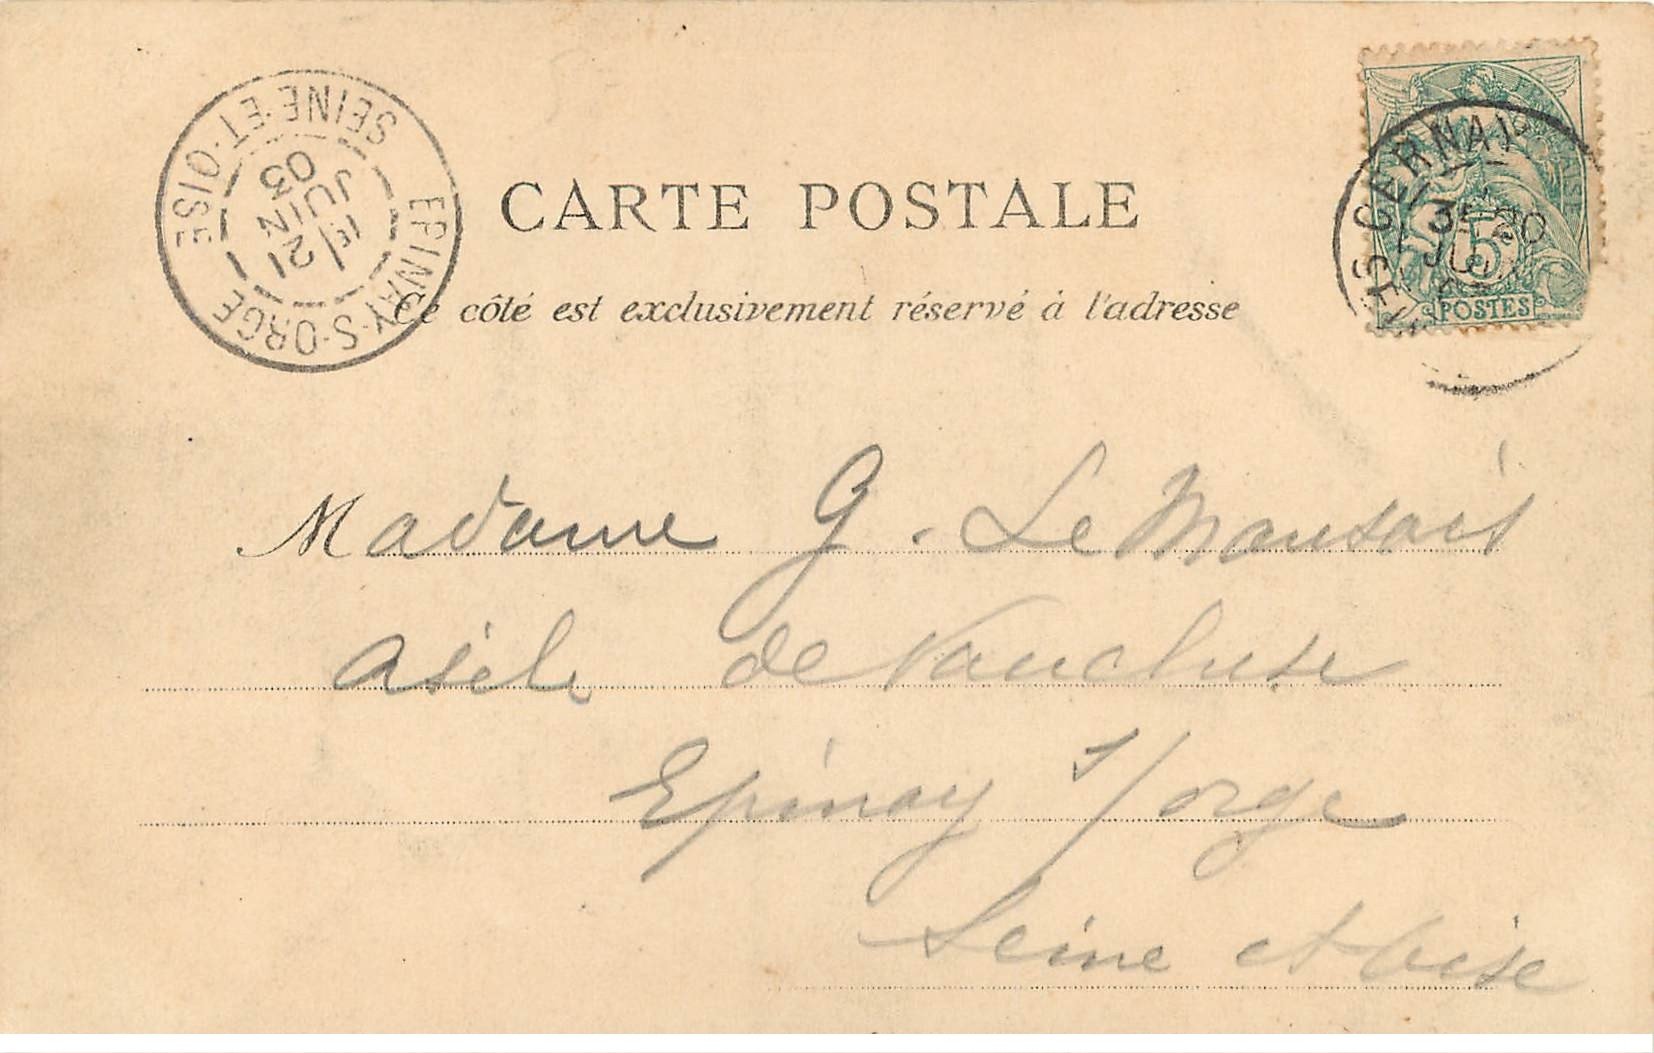 CARTE POSTALE
Ce côté est exclusivement réservé à l'adresse
EPINAY-S-ORGE
SEINE-ET-OISE
1E/21
JUIN
03
CERNAY
POSTES
5
Madame G. Le
Asile de Vaucluse
Epinay s/orge
Seine et Oise